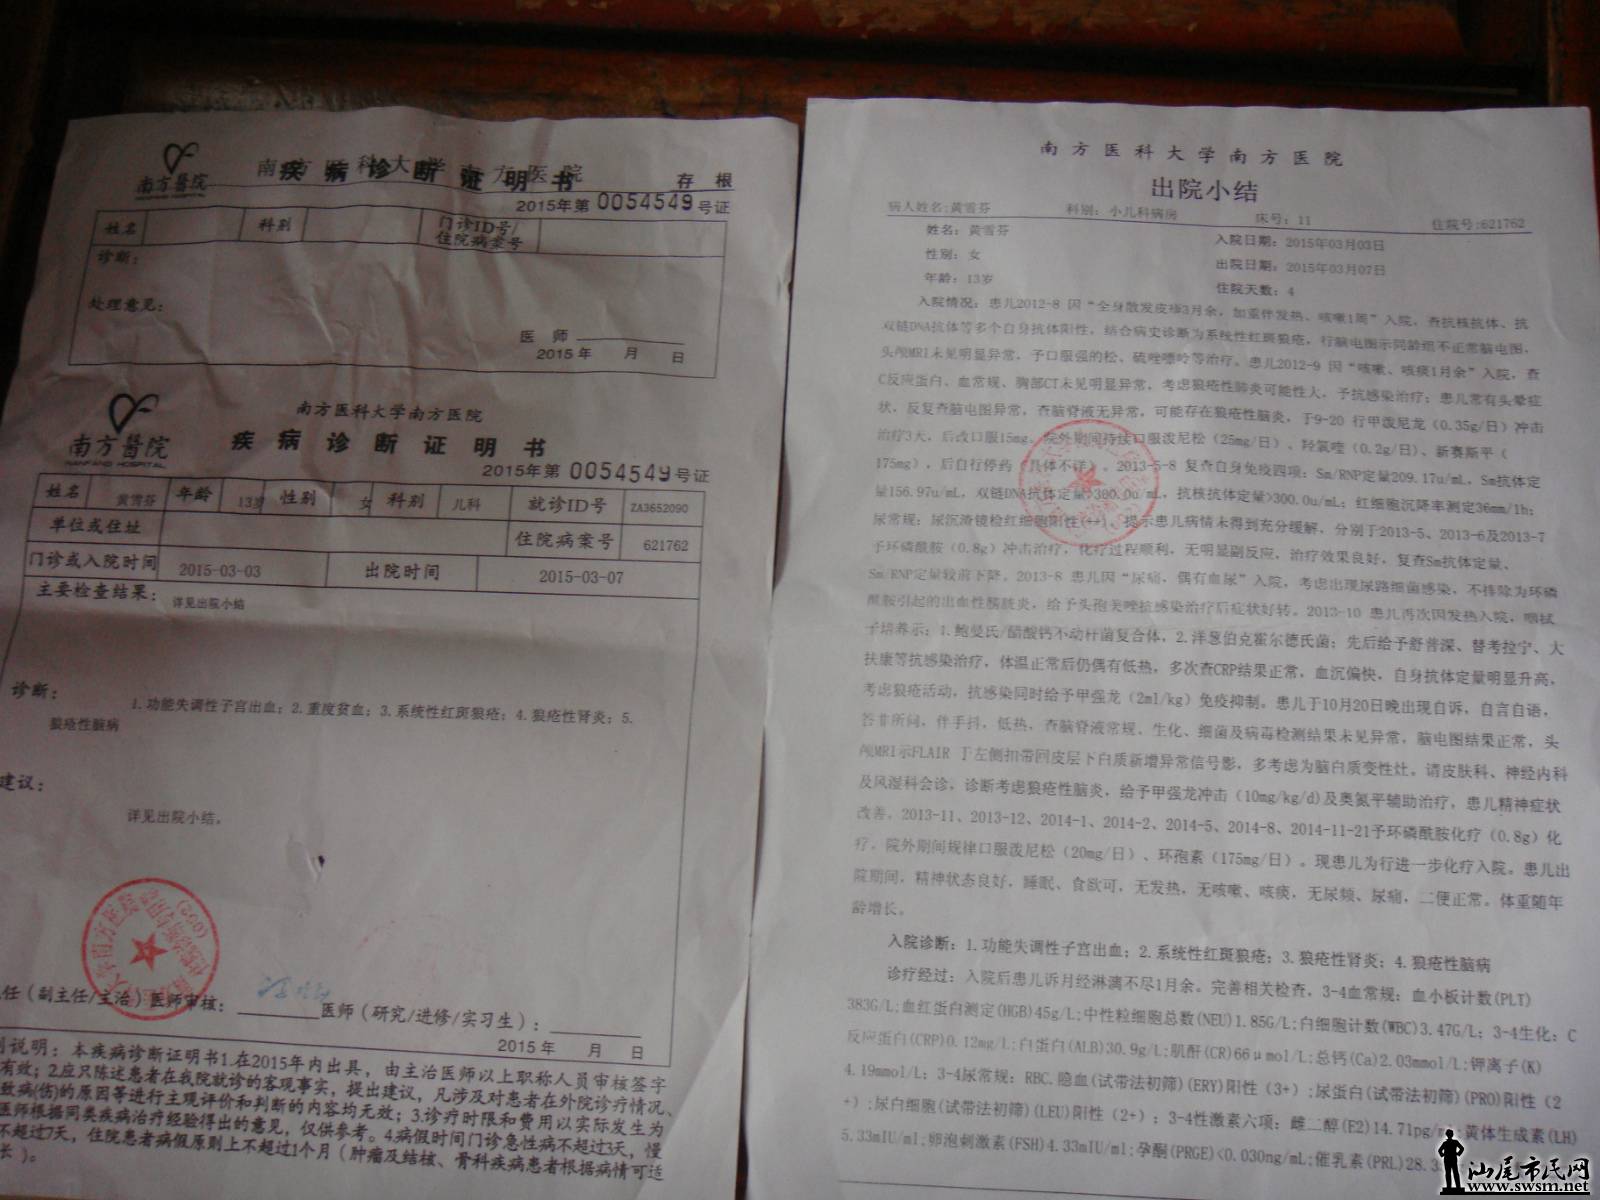 南方醫院
NANFANG HOSPITAL
南方医科大学南方医院
疾病诊断证明书
存根
2015年第 0054549 号证
姓名 科别 门诊ID号/住院病案号
诊断：
处理意见：
医师
2015年 月 日
南方醫院
NANFANG HOSPITAL
南方医科大学南方医院
疾病诊断证明书
2015年第 0054549 号证
姓名 黄雪芬 年龄 13岁 性别 女 科别 儿科 就诊ID号 ZA3652090
单位或住址 住院病案号 621762
门诊或入院时间 2015-03-03 出院时间 2015-03-07
主要检查结果：详见出院小结
诊断：
1.功能失调性子宫出血；2.重度贫血；3.系统性红斑狼疮；4.狼疮性肾炎；5.
狼疮性脑病
建议：
详见出院小结。
任（副主任/主治）医师审核： 医师（研究/进修/实习生）：
2015年 月 日
说明：本疾病诊断证明书1.在2015年内出具，由主治医师以上职称人员审核签字
有效；2.应只陈述患者在我院就诊的客观事实，提出建议，凡涉及对患者在外院诊疗情况、
致病(伤)的原因等进行主观评价和判断的内容均无效；3.诊疗时限和费用以实际发生为
医师根据同类疾病治疗经验得出的意见，仅供参考。4.病假时间门诊急性病不超过3天，慢
不超过7天，住院患者病假原则上不超过1个月（肿瘤及结核、骨科疾病患者根据病情可适
长）。
南方医科大学南方医院
出院小结
病人姓名：黄雪芬 科别：小儿科病房 床号：11 住院号：621762
姓名：黄雪芬 入院日期：2015年03月03日
性别：女 出院日期：2015年03月07日
年龄：13岁 住院天数：4
入院情况：患儿2012-8 因“全身散发皮疹3月余，加重伴发热、咳嗽1周”入院，查抗核抗体、抗
双链DNA抗体等多个自身抗体阳性，结合病史诊断为系统性红斑狼疮，行脑电图示同龄组不正常脑电图，
头颅MRI未见明显异常，予口服强的松、硫唑嘌呤等治疗。患儿2012-9 因“咳嗽、咳痰1月余”入院，查
C反应蛋白、血常规、胸部CT未见明显异常，考虑狼疮性肺炎可能性大，予抗感染治疗；患儿常有头晕症
状，反复查脑电图异常，查脑脊液无异常，可能存在狼疮性脑炎，于9-20 行甲泼尼龙（0.35g/日）冲击
治疗3天，后改口服15mg。院外期间持续口服泼尼松（25mg/日）、羟氯喹（0.2g/日）、新赛斯平（
175mg），后自行停药（具体不详）。2013-5-8 复查自身免疫四项：Sm/RNP定量209.17u/mL，Sm抗体定
量156.97u/mL，双链DNA抗体定量>300.0u/mL，抗核抗体定量>300.0u/mL；红细胞沉降率测定36mm/1h；
尿常规：尿沉渣镜检红细胞阳性(++)，提示患儿病情未得到充分缓解，分别于2013-5、2013-6及2013-7
予环磷酰胺（0.8g）冲击治疗，化疗过程顺利，无明显副反应，治疗效果良好，复查Sm抗体定量、
Sm/RNP定量较前下降。2013-8 患儿因“尿痛，偶有血尿”入院，考虑出现尿路细菌感染，不排除为环磷
酰胺引起的出血性膀胱炎，给予头孢美唑抗感染治疗后症状好转。2013-10 患儿再次因发热入院，咽拭
子培养示：1.鲍曼氏/醋酸钙不动杆菌复合体，2.洋葱伯克霍尔德氏菌；先后给予舒普深、替考拉宁、大
扶康等抗感染治疗，体温正常后仍偶有低热，多次查CRP结果正常，血沉偏快，自身抗体定量明显升高，
考虑狼疮活动，抗感染同时给予甲强龙（2ml/kg）免疫抑制。患儿于10月20日晚出现自诉，自言自语，
答非所问，伴手抖，低热，查脑脊液常规、生化、细菌及病毒检测结果未见异常，脑电图结果正常，头
颅MRI示FLAIR 于左侧扣带回皮层下白质新增异常信号影，多考虑为脑白质变性灶。请皮肤科、神经内科
及风湿科会诊，诊断考虑狼疮性脑炎，给予甲强龙冲击（10mg/kg/d)及奥氮平辅助治疗，患儿精神症状
改善。2013-11、2013-12、2014-1、2014-2、2014-5、2014-8、2014-11-21予环磷酰胺化疗（0.8g）化
疗。院外期间规律口服泼尼松（20mg/日）、环孢素（175mg/日）。现患儿为行进一步化疗入院。患儿出
院期间，精神状态良好，睡眠、食欲可，无发热，无咳嗽、咳痰，无尿频、尿痛，二便正常。体重随年
龄增长。
入院诊断：1.功能失调性子宫出血；2.系统性红斑狼疮；3.狼疮性肾炎；4.狼疮性脑病
诊疗经过：入院后患儿诉月经淋漓不尽1月余。完善相关检查，3-4血常规：血小板计数(PLT)
383G/L；血红蛋白测定(HGB)45g/L；中性粒细胞总数(NEU)1.85G/L；白细胞计数(WBC)3.47G/L；3-4生化：C
反应蛋白(CRP)0.12mg/L；白蛋白(ALB)30.9g/L；肌酐(CR)66μmol/L；总钙(Ca)2.03mmol/L；钾离子(K)
4.19mmol/L；3-4尿常规：RBC.隐血(试带法初筛)(ERY)阳性（3+）；尿蛋白(试带法初筛)(PRO)阳性（2
+）；尿白细胞(试带法初筛)(LEU)阳性（2+）；3-4性激素六项：雌二醇(E2)14.71pg/ml；黄体生成素(LH)
5.33mIU/ml；卵泡刺激素(FSH)4.33mIU/ml；孕酮(PRGE)<0.030ng/mL；催乳素(PRL)28.3
汕尾市民网
www.swsm.net